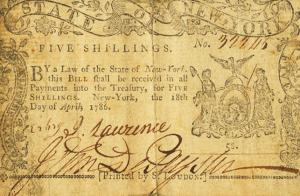 STATE OF NEW-YORK.
FIVE SHILLINGS. No.
BY a Law of the State of New-York.
this BILL shall be received in all
Payments into the Treasury, for FIVE
SHILLINGS. New-York, the 18th
Day of April, 1786.
Lawrence
5s.
Printed by S. LOUDON.